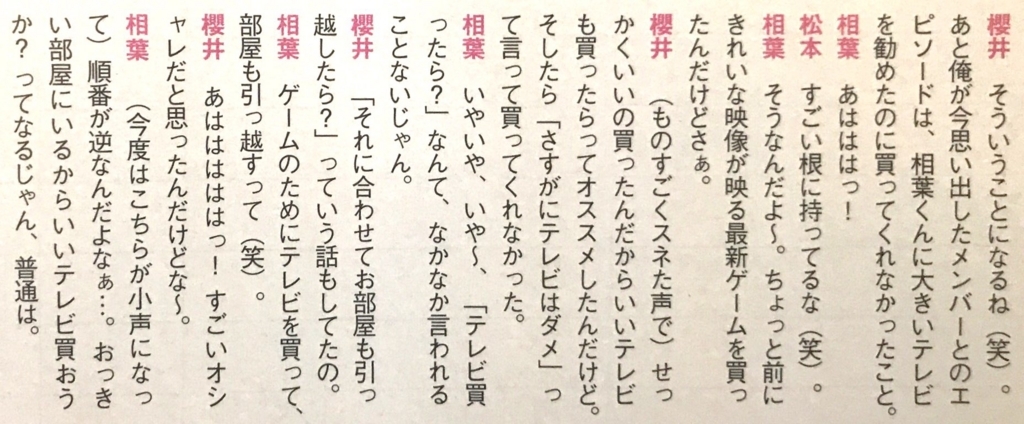 櫻井　そういうことになるね（笑）。
あと俺が今思い出したメンバーとのエ
ピソードは、相葉くんに大きいテレビ
を勧めたのに買ってくれなかったこと。
相葉　あはははっ！
松本　すごい根に持ってるな（笑）。
相葉　そうなんだよ〜。ちょっと前に
きれいな映像が映る最新ゲームを買っ
たんだけどさぁ。
櫻井　（ものすごくスネた声で）せっ
かくいいの買ったんだからいいテレビ
も買ったらってオススメしたんだけど。
そしたら「さすがにテレビはダメ」っ
て言って買ってくれなかった。
相葉　いやいや、いや〜、「テレビ買
ったら？」なんて、なかなか言われる
ことないじゃん。
櫻井　「それに合わせてお部屋も引っ
越したら？」っていう話もしてたの。
相葉　ゲームのためにテレビを買って、
部屋も引っ越すって（笑）。
櫻井　あはははははっ！　すごいオシ
ャレだと思ったんだけどな〜。
相葉　（今度はこちらが小声になっ
て）順番が逆なんだよなぁ…。おっき
い部屋にいるからいいテレビ買おう
か？ってなるじゃん、普通は。